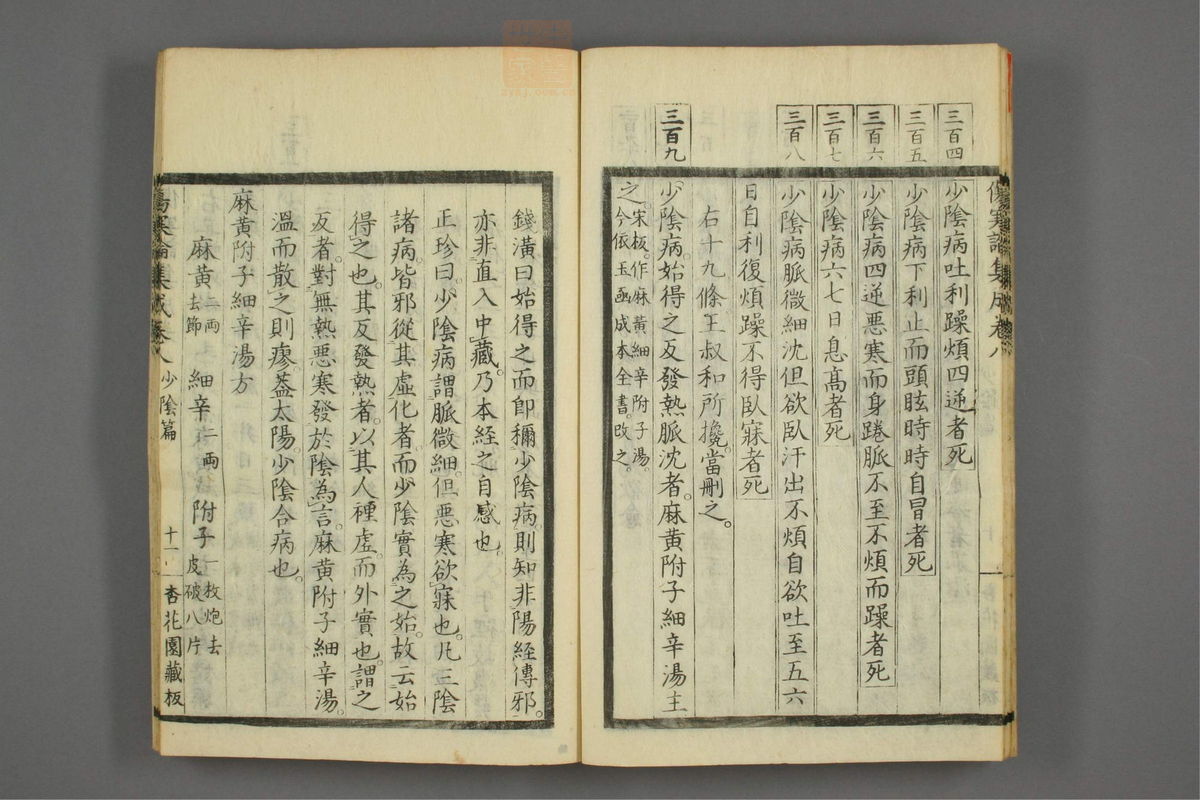 傷寒論集成卷八
三百四
少陰病吐利躁煩四逆者死
三百五
少陰病下利止而頭眩時時自冒者死
三百六
少陰病四逆惡寒而身踡脈不至不煩而躁者死
三百七
少陰病六七日息高者死
三百八
少陰病脈微細沈但欲臥汗出不煩自欲吐至五六
日自利復煩躁不得臥寐者死
右十九條王叔和所攙當刪之。
三百九
少陰病。始得之反發熱脈沈者。麻黃附子細辛湯主
之。宋板作麻黃細辛附子湯。今依玉函成本全書。改之。
錢潢曰始得之而卽稱少陰病。則知非陽經傳邪。
亦非直入中藏。乃本經之自感也。
正珍曰。少陰病謂脈微細。但惡寒欲寐也。凡三陰
諸病。皆邪從其虛化者。而少陰實為之始。故云始
得之也。其反發熱者。以其人裡虛。而外實也。謂之
反者。對無熱惡寒發於陰為言。麻黃附子細辛湯。
溫而散之則瘳。蓋太陽。少陰合病也。
麻黃附子細辛湯方
麻黃二兩去節 細辛二兩 附子一枚炮去皮破八片
傷寒論集成卷八 少陰篇 十一 杏花園藏板